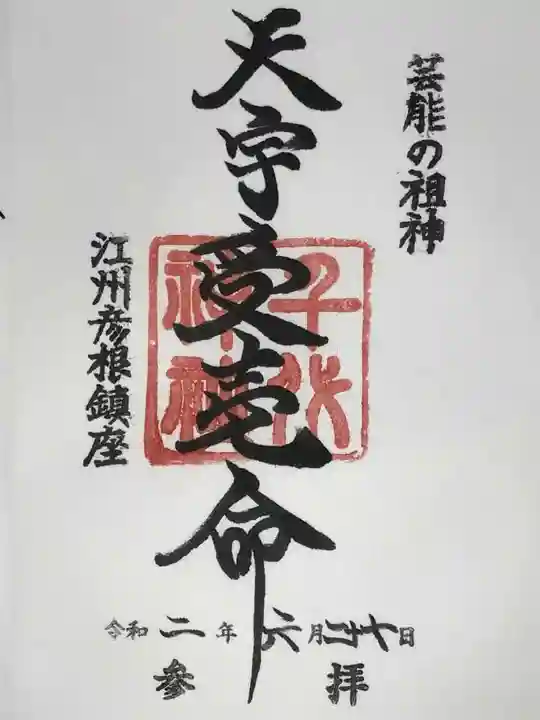 芸能の祖神
天宇受売命
千代神社
江州彦根鎮座
令和二年六月二十七日
参拝